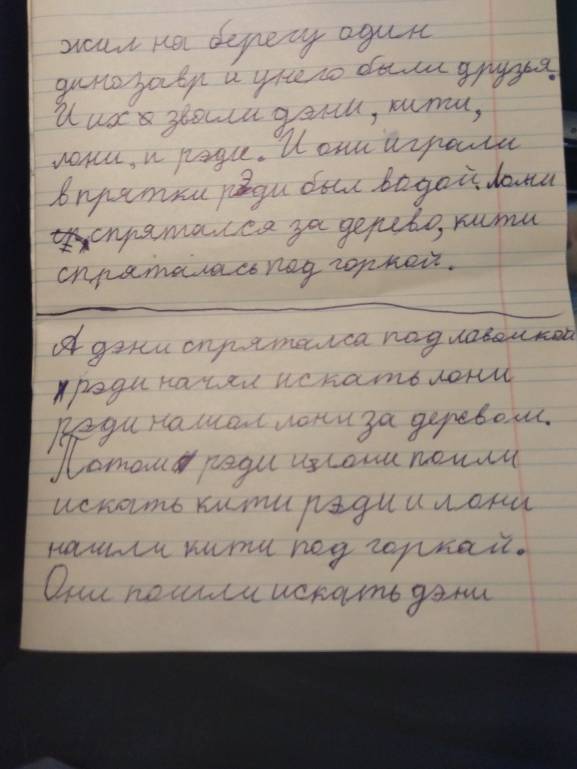 жил на берегу один
динозавр и унего были друзья.
И их звали дэни, кити,
лони, и рэди. И они играли
в прятки рэди был водой. Лони
спрятался за дерево, кити
спряталась под горкой.
А дэни спрятался под лавочкой
рэди начял искать лони
рэди нашол лони за деревом.
Потом рэди и лони пошли
искать кити рэди и лони
нашли кити под горкай.
Они пошли искать дэни